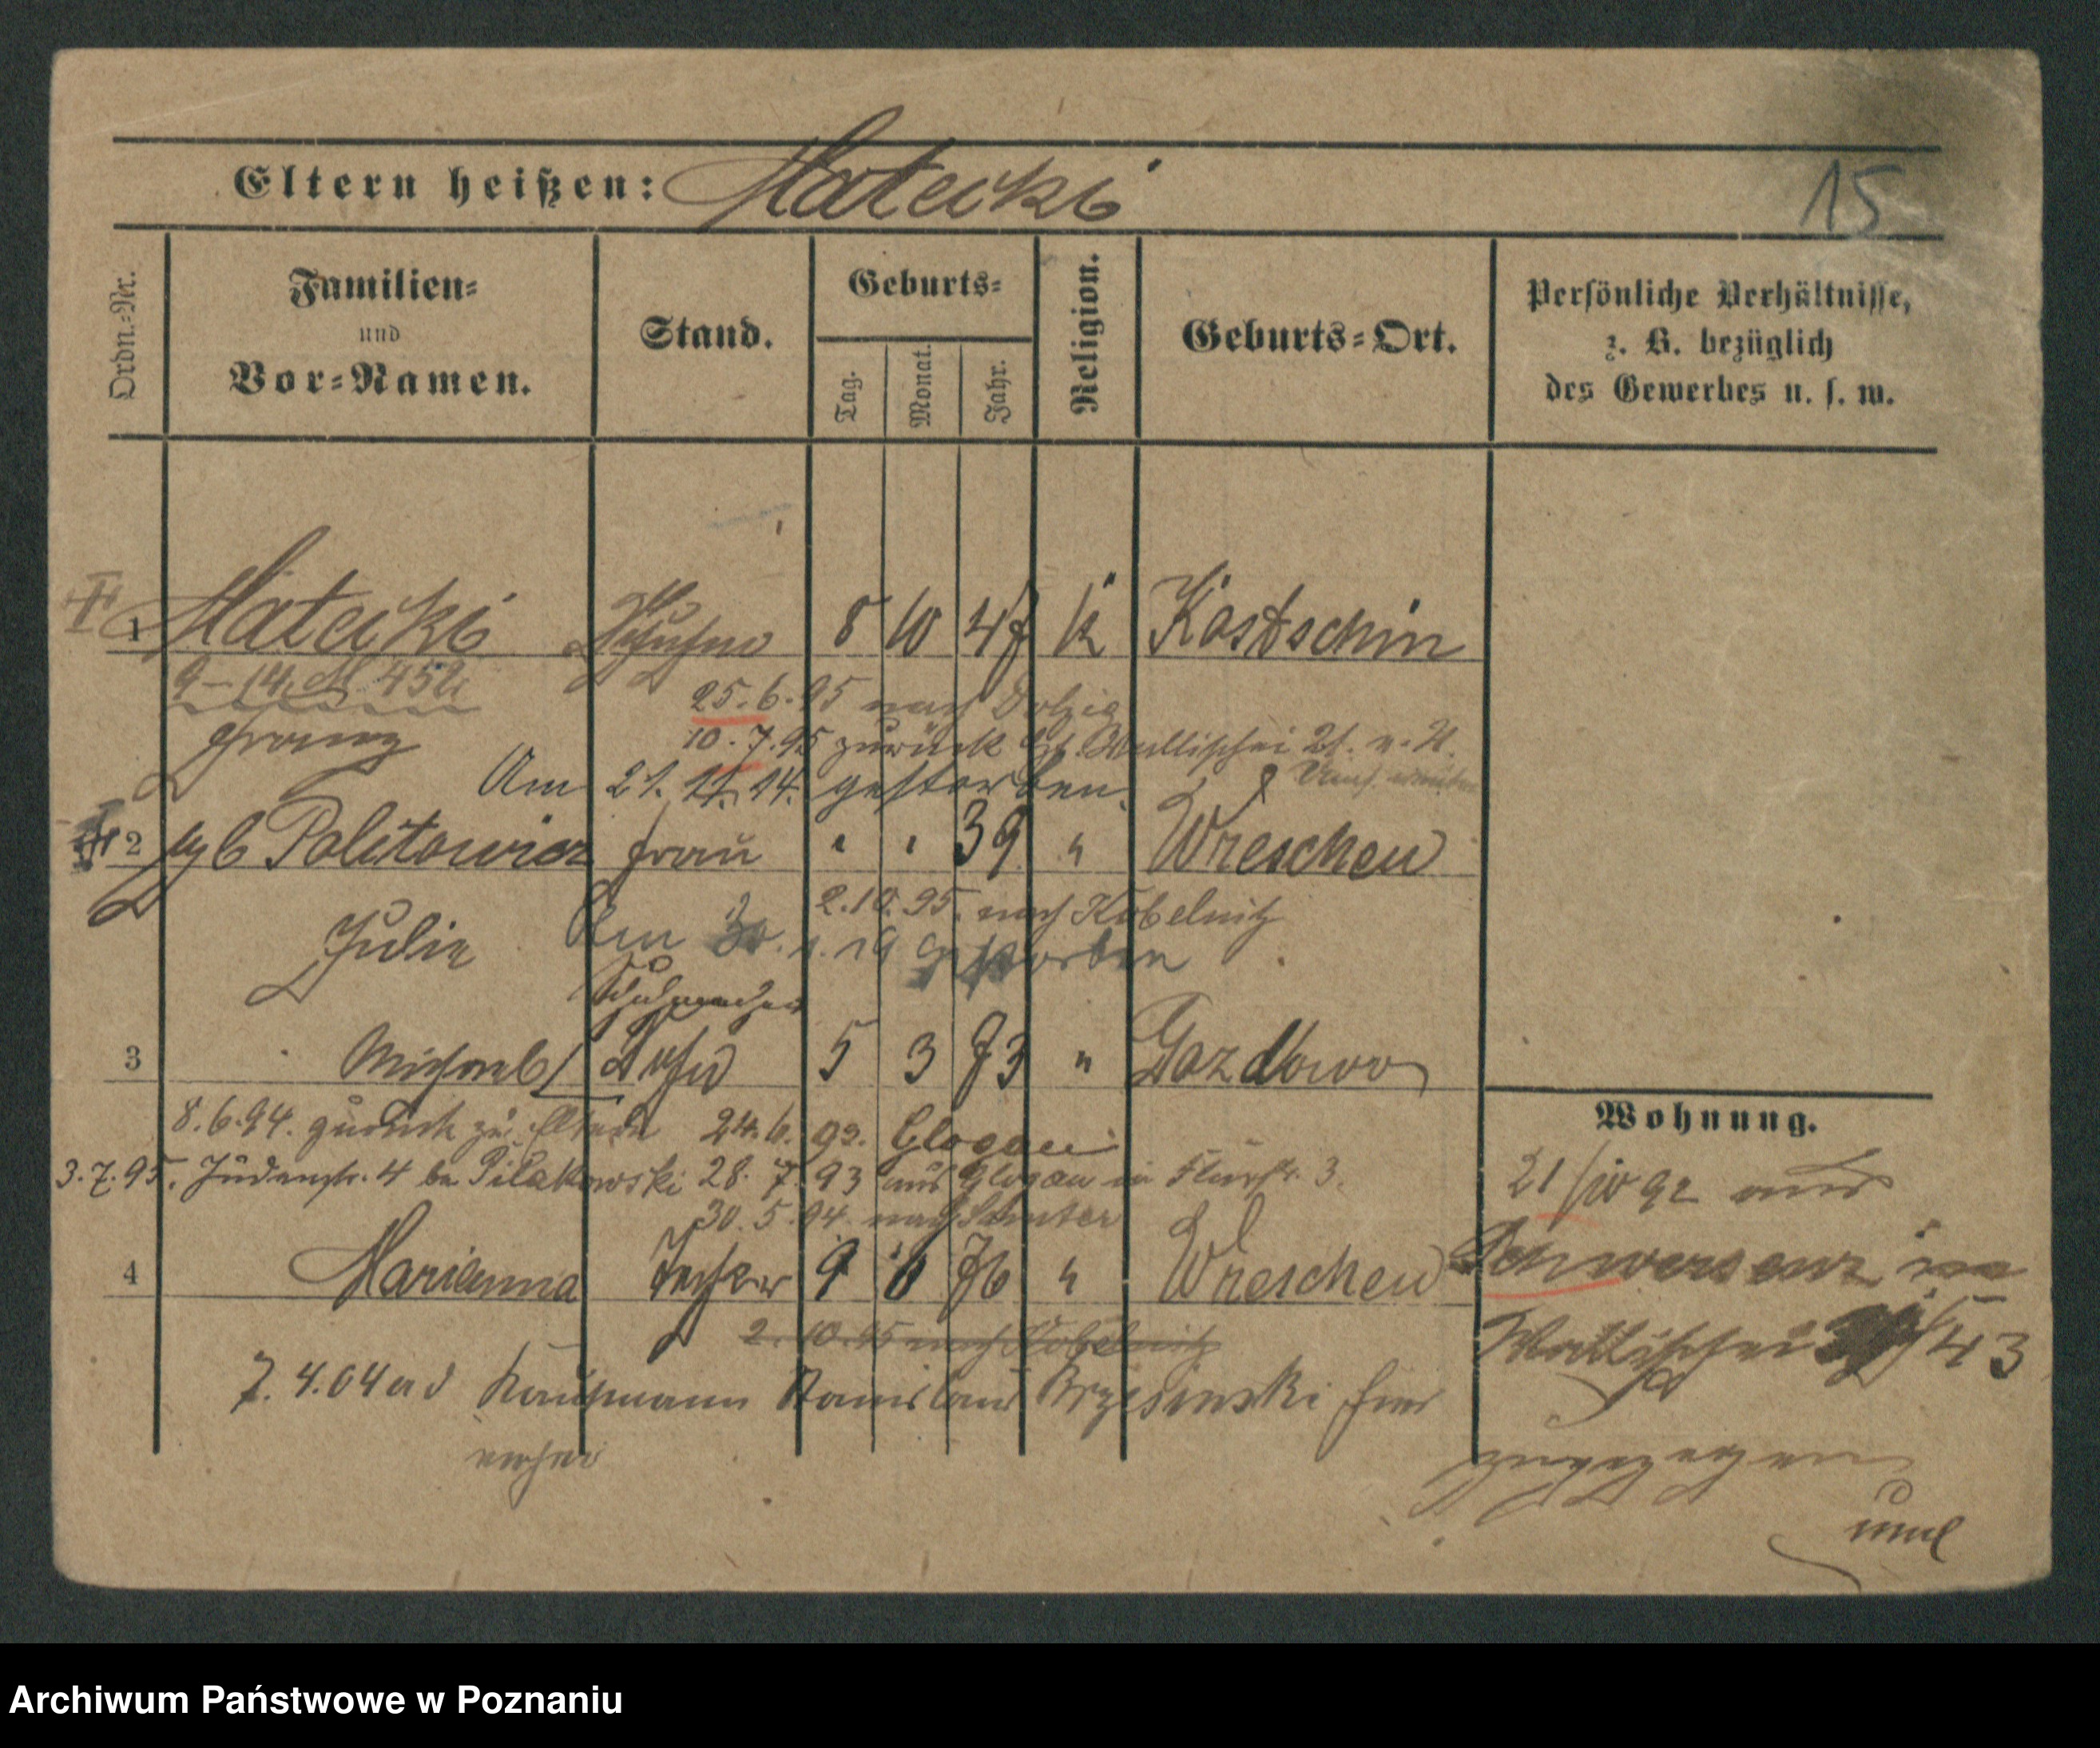 Eltern heißen: Matecki
15
Ordn.-Nr.
Familien-
und
Vor-Namen.
Stand.
Geburts-
Tag.
Monat.
Jahr.
Religion.
Geburts-Ort.
Persönliche Verhältnisse,
z. B. bezüglich
des Gewerbes u. s. w.
1 Matecki 8 10 47 k Kostschin
25.6.95 nach Dolzig
Franz 10.7.95 zurück Wallischei 21. v. H.
Am 21. 11. 14. gestorben.
2 geb Politowicz Frau " " 39 " Wreschen
2.10.95. nach Kobelnitz
Julie Am 30. 1. 19 gestorben
Schuhmacher
3 Michael Sohn 5 3 73 " Gozdowo
8.6.94. zurück zu Eltern 24.6. 93. Glogau
3.7.95. Judenstr. 4 bei Pilakowski 28. 7. 93 aus Glogau in 3.
30. 5. 94. nach Samter
4 Marianna Tochter 9 8 76 " Wreschen
2. 10. 95 nach Kobelnitz
7. 4. 04 Kaufmann Stanislaus Brzesinski
Wohnung.
21/10 92 aus
Schwersenz
Wallischei 43
zugezogen
Archiwum Państwowe w Poznaniu